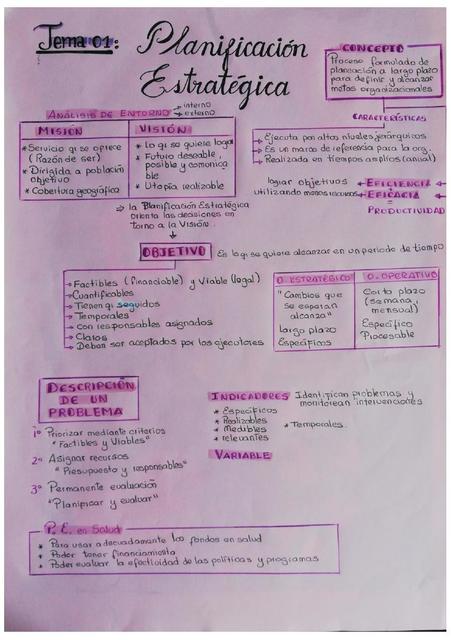 Tema 01: Planificación
Estratégica
CONCEPTO
Proceso formulado de
planeación a largo plazo
para definir y alcanzar
metas organizacionales
CARACTERÍSTICAS
→ Ejecuta por altos niveles jerárquicos
→ Es un marco de referencia para la org.
→ Realizada en tiempos amplios (anual)
lograr objetivos ← EFICIENCIA ←
utilizando menos recursos ← EFICACIA ←
= PRODUCTIVIDAD
ANÁLISIS DE ENTORNO → interno
→ externo
MISIÓN
* Servicio q' se ofrece
(Razón de ser)
* Dirigida a población
objetivo
* Cobertura geográfica
VISIÓN
* lo q' se quiere lograr
* Futuro deseable,
posible y comunica
ble
* Utopía realizable
⇒ la Planificación Estratégica
orienta las decisiones en
torno a la Visión.
OBJETIVO Es lo q' se quiere alcanzar en un periodo de tiempo
→ Factibles (financiable) y Viable (legal)
→ Cuantificables
→ Tienen q' seguidos
→ Temporales
→ con responsables asignados
→ Claros
→ Deben ser aceptados por los ejecutores
O. ESTRATÉGICO
"Cambios que
se esperan
alcanzar"
Largo plazo
Específicos
O. OPERATIVO
Corto plazo
(semana,
mensual)
Específico
Procesable
DESCRIPCIÓN
DE UN
PROBLEMA
1º Priorizar mediante criterios
"Factibles y Viables"
2º Asignar recursos
"Presupuesto y responsables"
3º Permanente evaluación
"Planificar y evaluar"
INDICADORES Identifican problemas y
monitorean intervenciones
* Específicos
* Realizables
* Medibles
* relevantes
* Temporales.
VARIABLE
P. E. en Salud
* Para usar adecuadamente los fondos en salud
* Poder tener financiamiento
* Poder evaluar la efectividad de las políticas y programas